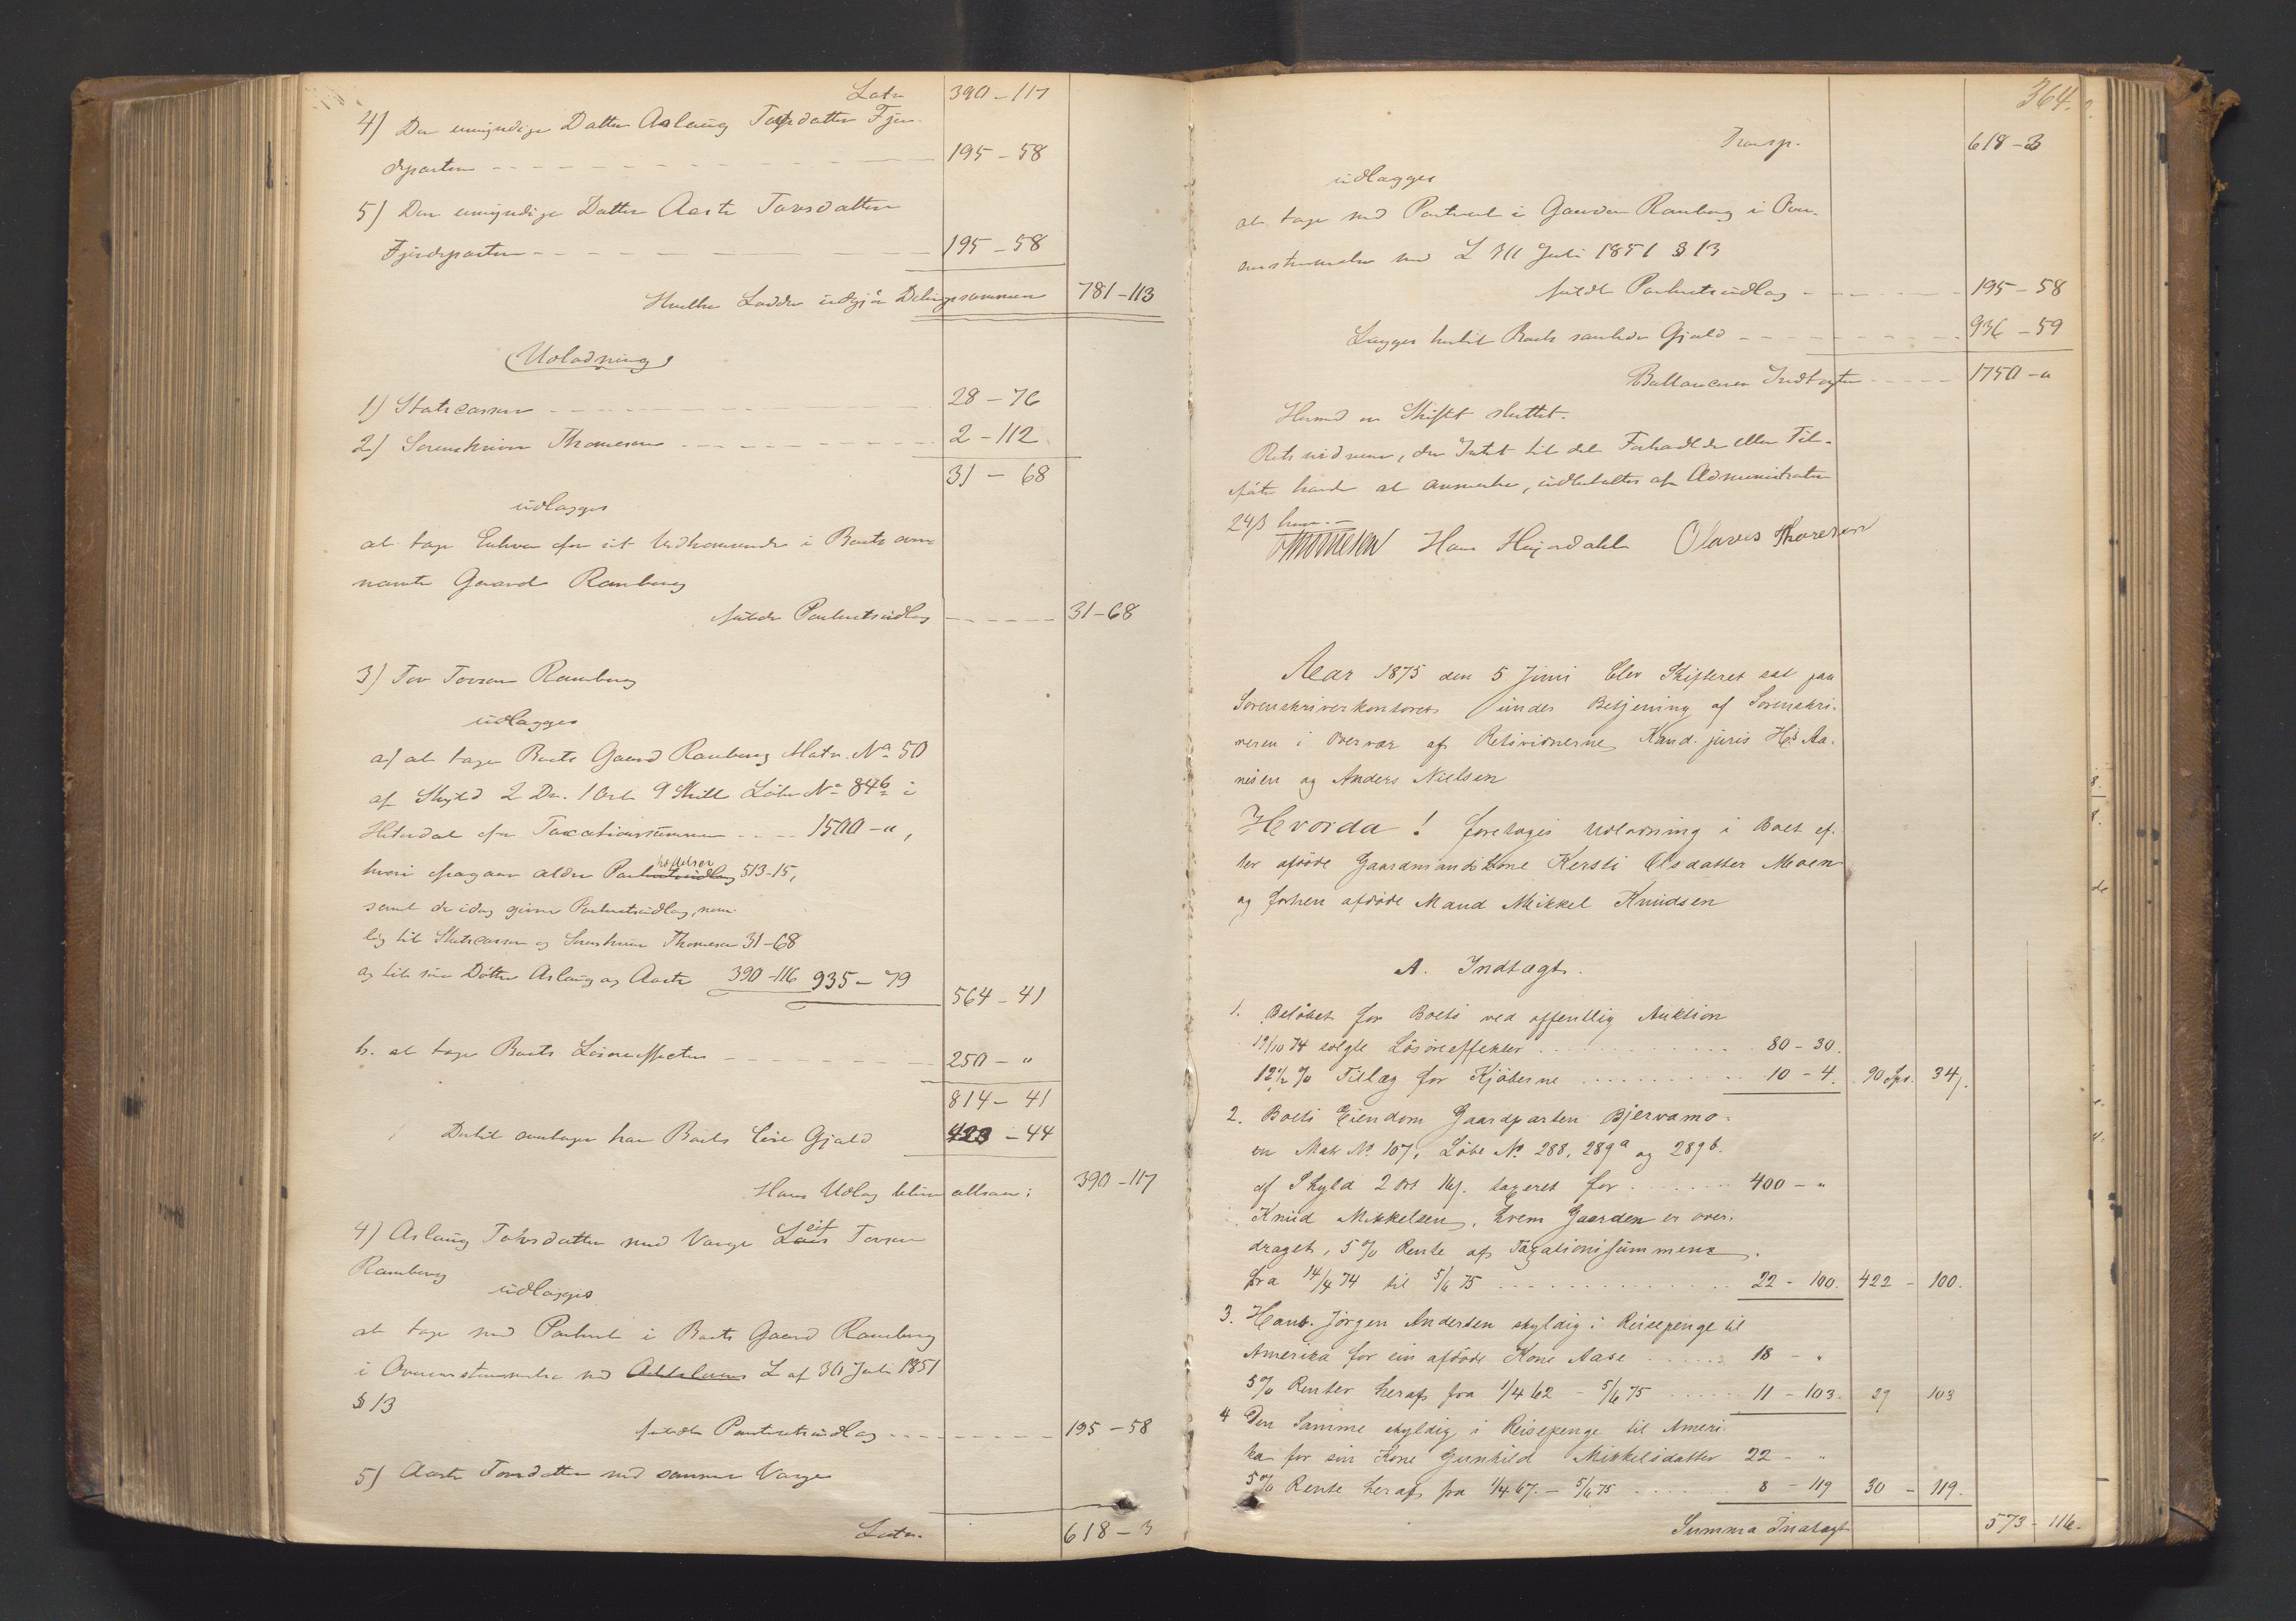 Latr 390-117
4) Den umyndige Datter Aslaug Tovsdatter Fjer-
departen 195-58
5) Den umyndige Datter Aaste Tovsdatter
Fjerdeparten 195-58
Hvilke Lodder udgjør Delingssummen 781-113
Udlodning
1) Statscassen 28-76
2) Sorenskriver Thomesen 2-112
31-68
udlægges
at tage Enhver for sit Vedkommende i Boets oven
nævnte Gaard Ramberg
Panteretsudlæg 31-68
3) Tov Tovsen Ramberg
udlægges
a) at tage Boets Gaard Ramberg Matr. No 50
af Skyld 2 Dr. 1 Ort 9 Skill Løbe No 84b i
Hiterdal for Taxationssummen 1500-"
hvori fragaar ældre Panthæftelser 513-15,
samt de idag givne Panteretsudlæg, nem-
lig til Statscassen og Sorenskriver Thomesen 31-68
og til sine Døttre Aslaug og Aaste 390-116 935-79
564-41
b. at tage Boets Løsøreeffecter 250-"
814-41
Dertil overtager han Boets Gjæld 423-44
Hans Udlæg bliver altsaa: 390-117
4) Aslaug Tovsdatter med Værge Leif Tovsen
Ramberg
udlægges
at tage med Panteret i Boets Gaard Ramberg
i Overensstemmelse med L af 30 Juli 1851
§ 13
Panteretsudlæg 195-58
5) Aaste Tovsdatter med samme Værge
Latr. 618-3
364.
Transp. 618-3
udlægges
at tage med Panteret i Gaarden Ramberg i Over-
ensstemmelse med L 30 Juli 1851 § 13
Panteretsudlæg 195-58
Lægges hertil Boets samlede Gjæld 936-59
Ballancerer Indtægten 1750-"
Hermed er Skiftet sluttet.
Retsvidnerne, der Intet til det Forhandlede eller Til-
førte havde at anmærke, udbetaltes af Administrator
24 ß hver.
Thomesen Hans Hejerdahl Olaves Thoresen
Aar 1875 den 5 Juni blev Skifteret sat paa
Sorenskriverkontoret under Betjening af Sorenskri-
veren i Overvær af Retsvidnerne Kand. juris Hs Aa-
nesen og Anders Nielsen
Hvorda! foretoges Udlodning i Boet ef-
ter afdøde Gaardmandskone Kersti Olsdatter Moen
og forhen afdøde Mand Mikkel Knudsen
A. Indtægt.
1. Beløbet for Boets ved offentlig Auktion
19/10 74 solgte Løsøreeffekter 80-30.
12½ % Tillæg for Kjøberne 10-4. 90 Spd. 34
2. Boets Eiendom Gaardparten Bjervamo-
en Matr No. 107, Løbe No. 288, 289a og 289b.
af Skyld 2 Ort 16 taxeret for 400-"
Knud Mikkelsen, hvem Gaarden er over-
draget, 5 % Rente af Taxationssummen
fra 14/4 74 til 5/6 75 22-100. 422-100.
3. Hans Jørgen Andersen skyldig i Reisepenge til
Amerika for sin afdøde Kone Aase 18-"
5 % Renter heraf fra 1/4 62 - 5/6 75 11-103. 29 103
4 Den Samme skyldig i Reisepenge til Ameri-
ka for sin Kone Gunhild Mikkelsdatter 22-"
5 % Rente heraf fra 1/4 67. - 5/6 75 8-119 30-119.
Summa Indtægt 573-116.